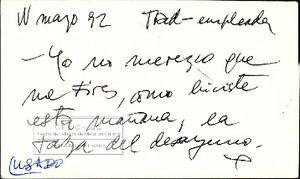 IV mayo 92 Trad-empleada
-Yo no merezco que
me tires, como hiciste
esta mañana, la
taza del desayuno.
USADO